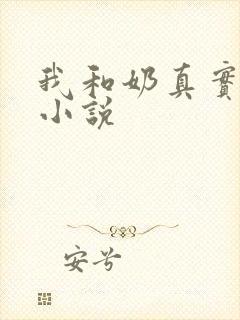 我和奶真實
小說
安兮